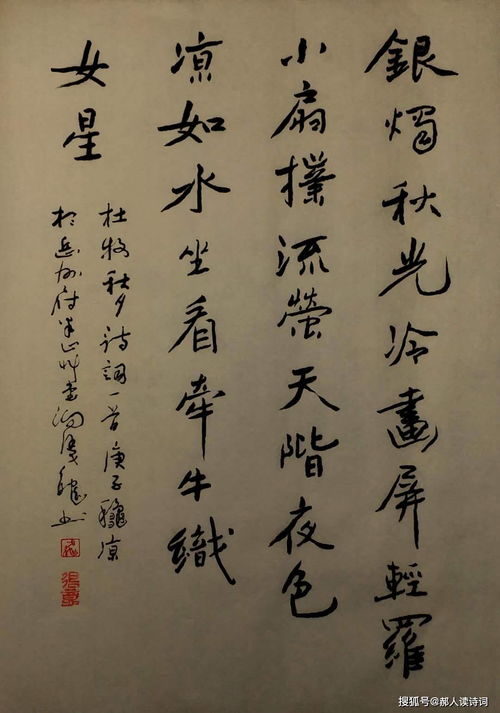 銀燭秋光冷畫屏輕羅
小扇撲流螢天階夜色
凉如水坐看牽牛織
女星
杜牧秋夕詩詞一首庚子龝凉
於岳州府
搜狐号@郝人读诗词